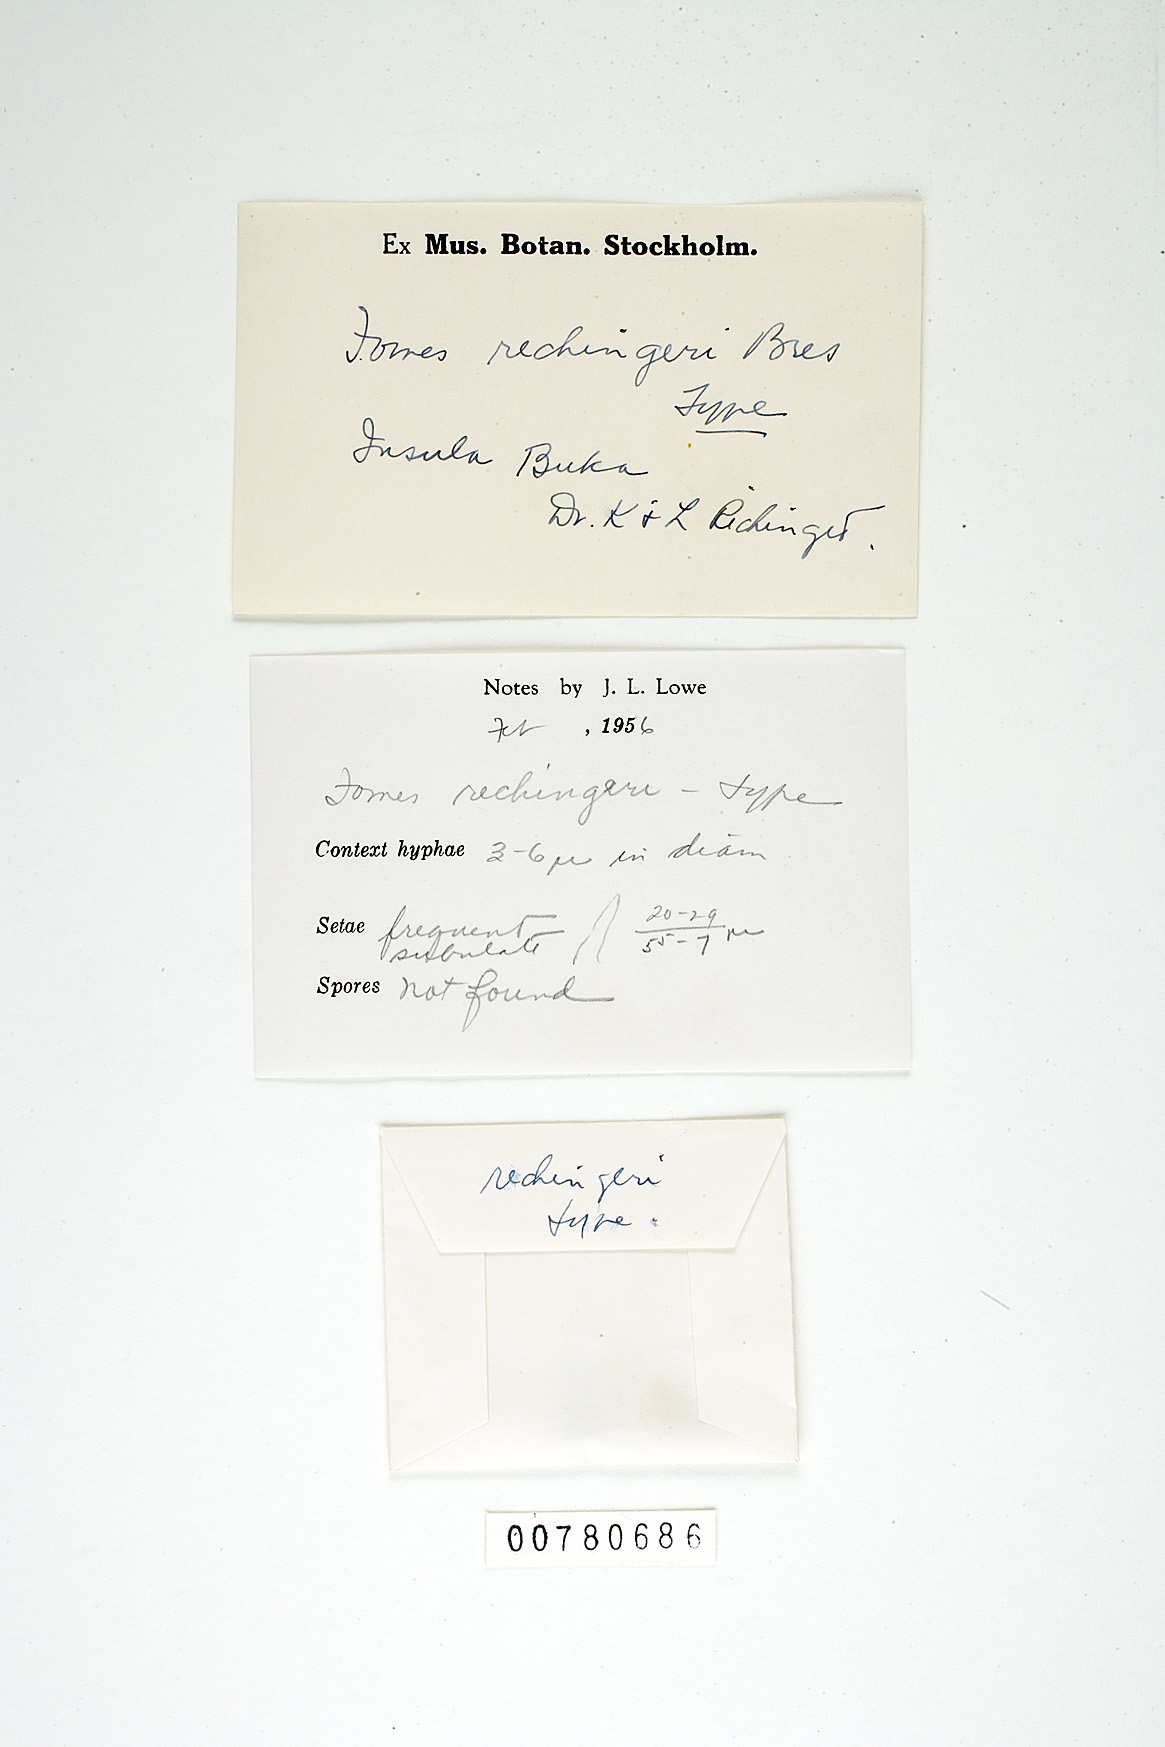 Ex Mus. Botan. Stockholm.
Fomes rechingeri Bres
Type
Insula Buka
Dr. K & L Rechinger.
Notes by J. L. Lowe
Feb , 1956
Fomes rechingeri - type
Context hyphae 3-6 µ in diam
Setae frequent 20-29
subulate 55-7 µ
Spores not found
rechingeri
type.
00780686